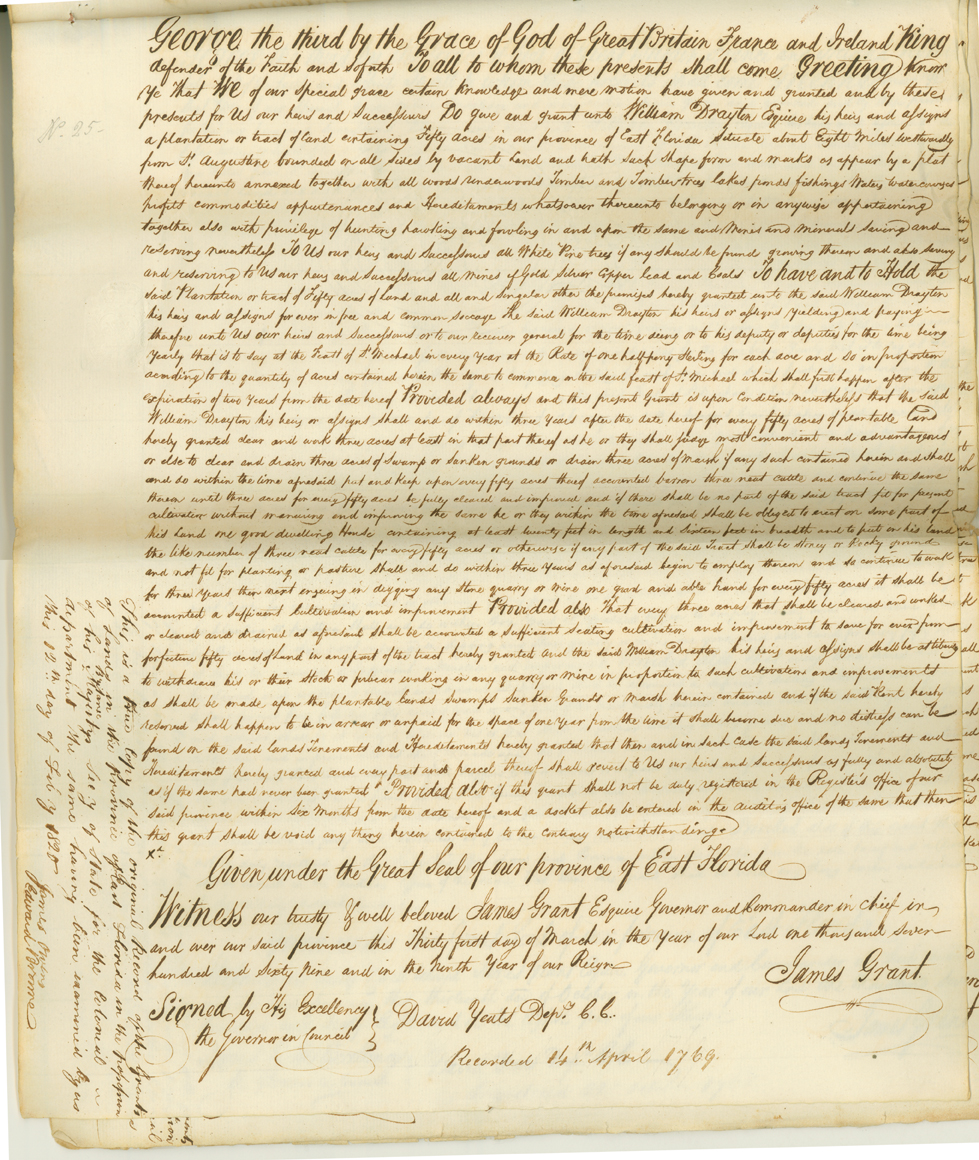 George the third by the Grace of God of Great Britain France and Ireland King
defender of the Faith and so forth To all to whom these presents shall come Greeting Know
Ye That We of our Special grace certain Knowledge and mere motion have given and granted and by these
presents for Us our heirs and Successours Do give and grant unto William Drayton Esquire his heirs and assigns
a plantation or tract of land containing Fifty acres in our province of East Florida situate about Eight Miles westwardly
from St. Augustine bounded on all sides by vacant Land and hath such shape form and marks as appear by a plat
thereof hereunto annexed together with all woods Underwoods Timber and Timbertrees lakes ponds fishings Waters Watercourses
profits commodities appurtenances and Hereditaments whatsoever thereunto belonging or in anywise appertaining
together also with priviledge of hunting hawking and fowling in and upon the same and Mines and Minerals saving and
reserving nevertheless To Us our heirs and Successours all White Pine trees if any should be found growing thereon and also saving
and reserving to Us our heirs and Successours all mines of Gold Silver Copper Lead and Coals To have and to Hold the
said Plantation or tract of Fifty acres of Land and all and singular other the premises hereby granted unto the said William Drayton
his heirs and assigns for ever in free and common soccage the said William Drayton his heirs or assigns yielding and paying
therefore unto Us our heirs and Successours or to our receiver general for the time being or to his deputy or deputies for the time being
Yearly that is to say at the Feast of St. Michael in every Year at the Rate of one halfpenny sterling for each acre and so in proportion
according to the quantity of acres contained herein the same to commence on the said feast of St. Michael which shall first happen after the
expiration of two Years from the date hereof Provided always and this present Grant is upon Condition nevertheless that the said
William Drayton his heirs or assigns shall and do within three Years after the date hereof for every fifty acres of plantable Land
hereby granted clear and work three acres at least in that part thereof as he or they shall judge most convenient and advantageous
or else to clear and drain three acres of swamp or sunken grounds or drain three acres of Marsh if any such contained herein and shall
and do within the time aforesaid put and keep upon every fifty acres thereof accounted barren three neat cattle and continue the same
thereon until three acres for every fifty acres be fully cleared and improved and if there shall be no part of the said tract fit for present
cultivation without manuring and improving the same he or they within the time aforesaid shall be obliged to erect on some part of
his Land one good dwelling House containing at least twenty feet in length and sixteen feet in breadth and to put on his land
the like number of three neat cattle for every fifty acres or otherwise if any part of the said Tract shall be stoney or Rocky ground
and not fit for planting or pasture shall and do within three Years as aforesaid begin to employ thereon and so continue to work
for three Years then next ensuing in digging any stone quarry or mine one good and able hand for every fifty acres it shall be
accounted a sufficient Cultivation and improvement Provided also That every three acres that shall be cleared and worked
or cleared and drained as aforesaid shall be accounted a sufficient seating cultivation and improvement to save for ever from
forfeiture fifty acres of Land in any part of the tract hereby granted and the said William Drayton his heirs and assigns shall be at liberty
to withdraw his or their stock or forbear working in any quarry or mine in proportion to such cultivation and improvements
as shall be made upon the plantable lands swamps Sunken Grounds or Marsh herein contained and if the said Rent hereby
reserved shall happen to be in arrear or unpaid for the space of one Year from the time it shall become due and no distress can be
found on the said Lands Tenements and Hereditaments hereby granted that then and in such case the said Lands Tenements and
Hereditaments hereby granted and every part and parcel thereof shall revert to Us our heirs and Successours as fully and absolutely
as if the same had never been granted Provided also if this grant shall not be duly registered in the Register's office of our
said province within Six Months from the date hereof and a docket also be entered in the auditor's office of the same that then
this grant shall be void any thing herein contained to the contrary notwithstanding
Given under the Great Seal of our province of East Florida
Witness our trusty & well beloved James Grant Esquire Governor and Commander in chief in
and over our said province this Thirty first day of March in the Year of our Lord one thousand seven
hundred and Sixty Nine and in the Ninth Year of our Reign
James Grant.
Signed by His Excellency
the Governor in Council
David Yeats Depy. C. C.
Recorded 14th April 1769.
No. 25
This is a true Copy of the original Record of the Grants
of Lands in the province of East Florida in the possession
of his Majestys Secy of State for the Colonial
department the same having been examined by us
this 12th day of Feb'ry 1820
James
Edward